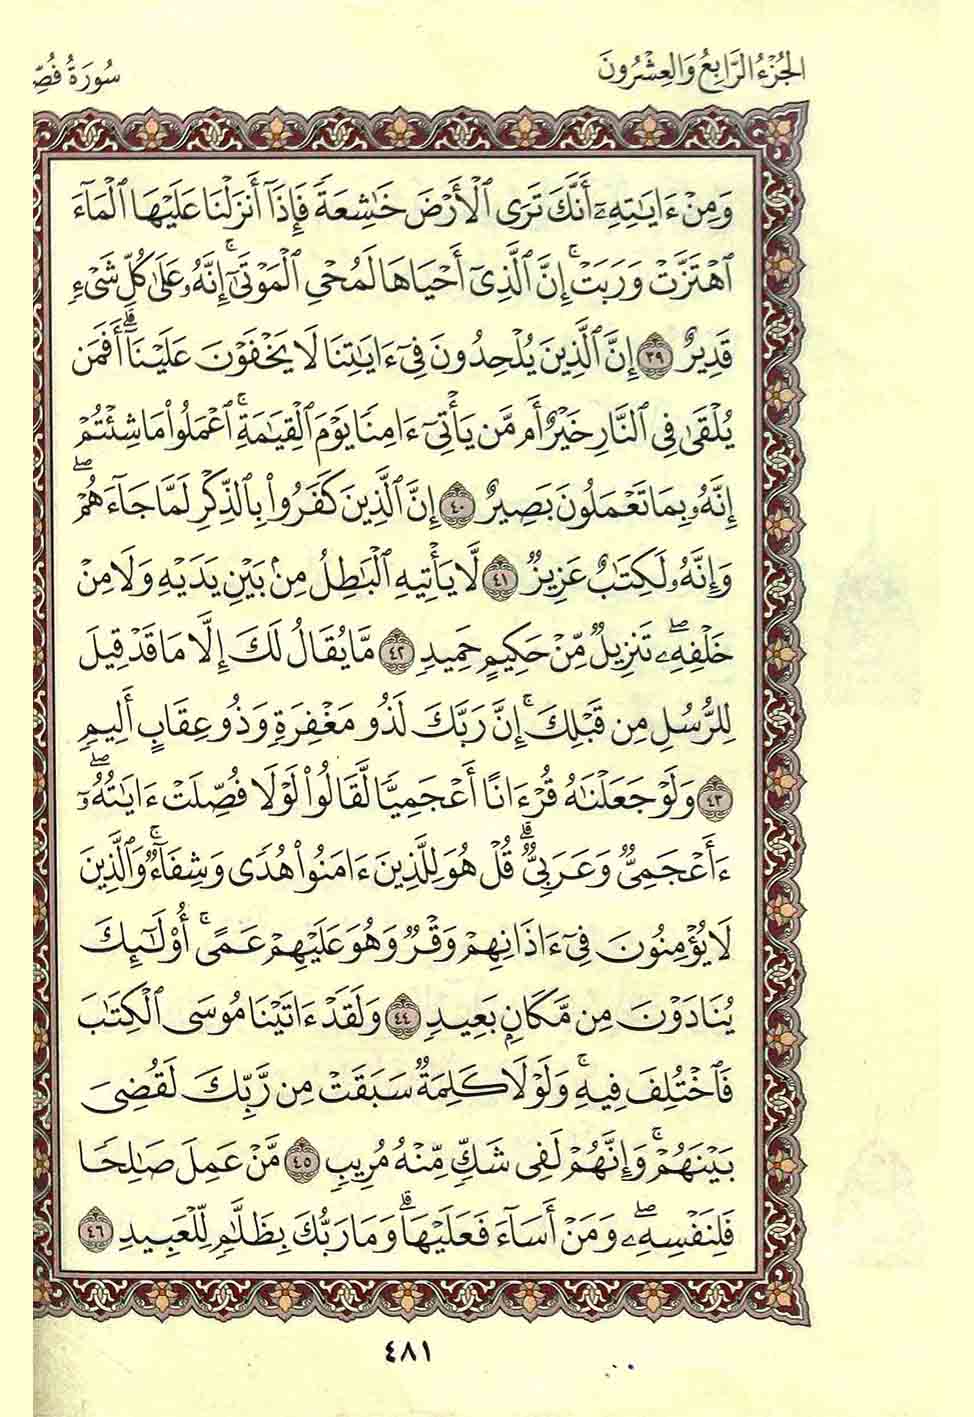 الجُزْءُ الرَّابِعُ وَالعِشْرُونَ
سُورَةُ فُصِّ
وَمِنْ ءَايَٰتِهِۦٓ أَنَّكَ تَرَى ٱلْأَرْضَ خَٰشِعَةً فَإِذَآ أَنزَلْنَا عَلَيْهَا ٱلْمَآءَ
ٱهْتَزَّتْ وَرَبَتْ ۚ إِنَّ ٱلَّذِىٓ أَحْيَاهَا لَمُحْىِ ٱلْمَوْتَىٰٓ ۚ إِنَّهُۥ عَلَىٰ كُلِّ شَىْءٍ
قَدِيرٌ ٣٩ إِنَّ ٱلَّذِينَ يُلْحِدُونَ فِىٓ ءَايَٰتِنَا لَا يَخْفَوْنَ عَلَيْنَآ ۗ أَفَمَن
يُلْقَىٰ فِى ٱلنَّارِ خَيْرٌ أَم مَّن يَأْتِىٓ ءَامِنًا يَوْمَ ٱلْقِيَٰمَةِ ۚ ٱعْمَلُوا۟ مَا شِئْتُمْ ۖ
إِنَّهُۥ بِمَا تَعْمَلُونَ بَصِيرٌ ٤٠ إِنَّ ٱلَّذِينَ كَفَرُوا۟ بِٱلذِّكْرِ لَمَّا جَآءَهُمْ ۖ
وَإِنَّهُۥ لَكِتَٰبٌ عَزِيزٌ ٤١ لَّا يَأْتِيهِ ٱلْبَٰطِلُ مِنۢ بَيْنِ يَدَيْهِ وَلَا مِنْ
خَلْفِهِۦ ۖ تَنزِيلٌ مِّنْ حَكِيمٍ حَمِيدٍ ٤٢ مَّا يُقَالُ لَكَ إِلَّا مَا قَدْ قِيلَ
لِلرُّسُلِ مِن قَبْلِكَ ۚ إِنَّ رَبَّكَ لَذُو مَغْفِرَةٍ وَذُو عِقَابٍ أَلِيمٍ
٤٣ وَلَوْ جَعَلْنَٰهُ قُرْءَانًا أَعْجَمِيًّا لَّقَالُوا۟ لَوْلَا فُصِّلَتْ ءَايَٰتُهُۥٓ ۖ
ءَا۬عْجَمِىٌّ وَعَرَبِىٌّ ۗ قُلْ هُوَ لِلَّذِينَ ءَامَنُوا۟ هُدًى وَشِفَآءٌ ۖ وَٱلَّذِينَ
لَا يُؤْمِنُونَ فِىٓ ءَاذَانِهِمْ وَقْرٌ وَهُوَ عَلَيْهِمْ عَمًى ۚ أُو۟لَٰٓئِكَ
يُنَادَوْنَ مِن مَّكَانٍۭ بَعِيدٍ ٤٤ وَلَقَدْ ءَاتَيْنَا مُوسَى ٱلْكِتَٰبَ
فَٱخْتُلِفَ فِيهِ ۚ وَلَوْلَا كَلِمَةٌ سَبَقَتْ مِن رَّبِّكَ لَقُضِىَ
بَيْنَهُمْ ۚ وَإِنَّهُمْ لَفِى شَكٍّ مِّنْهُ مُرِيبٍ ٤٥ مَّنْ عَمِلَ صَٰلِحًا
فَلِنَفْسِهِۦ ۖ وَمَنْ أَسَآءَ فَعَلَيْهَا ۗ وَمَا رَبُّكَ بِظَلَّٰمٍ لِّلْعَبِيدِ ٤٦
٤٨١